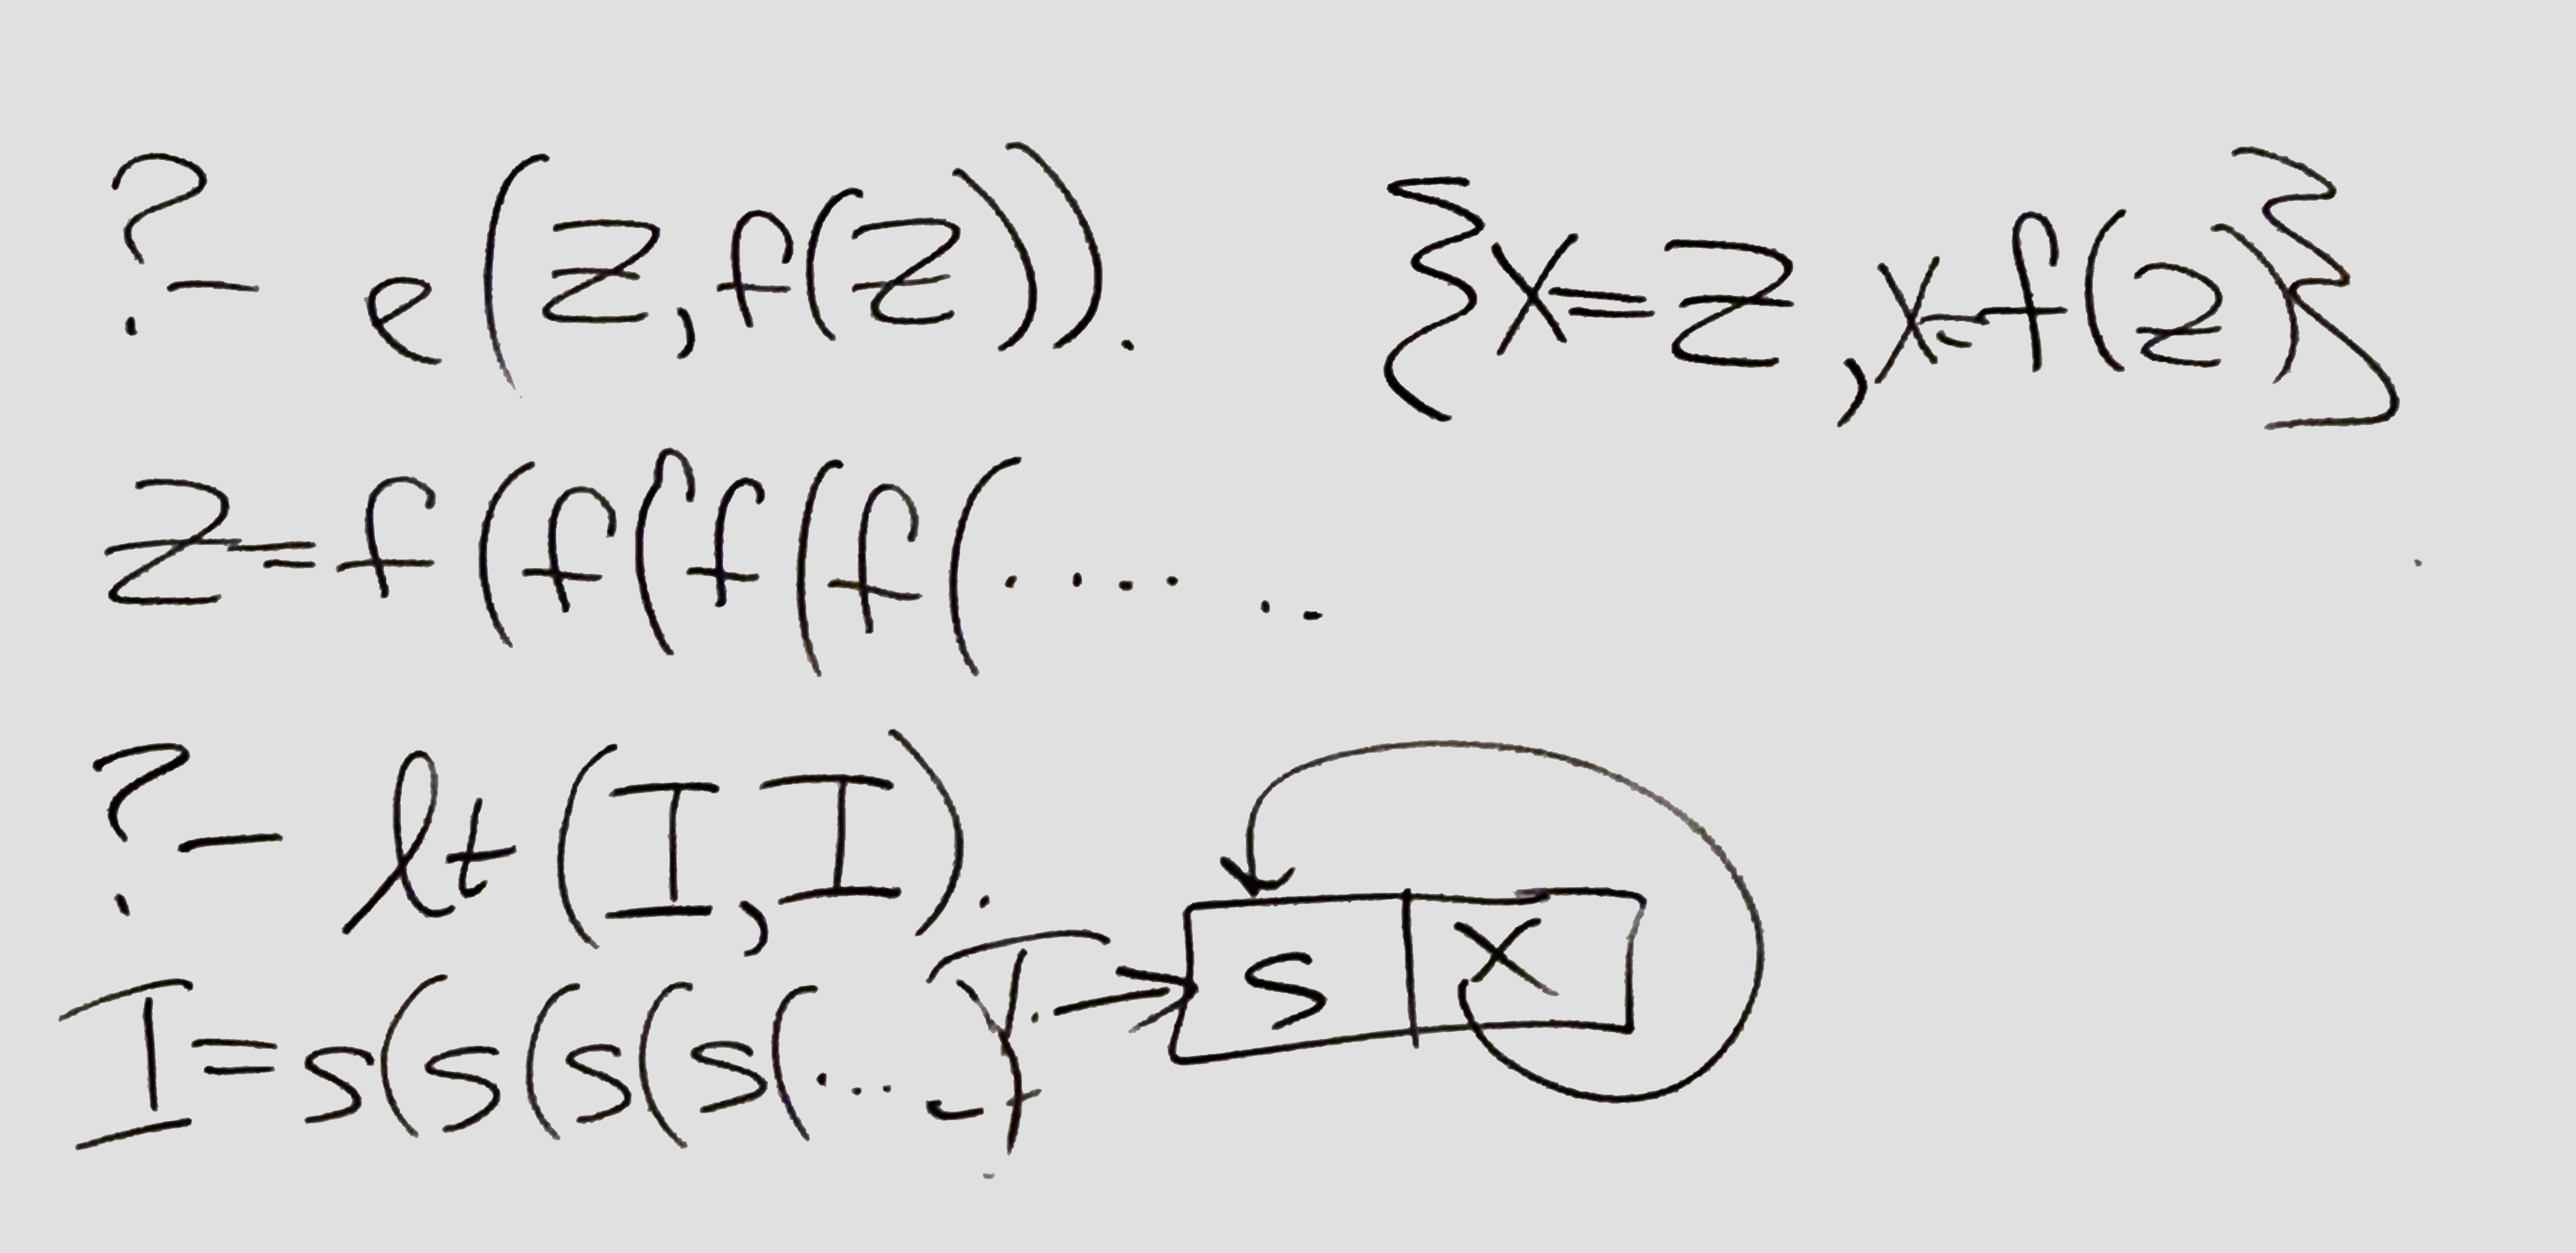 ?- e(Z,f(Z)). {X=Z,X=f(Z)}
Z=f(f(f(f(......
?- lt(I,I).
I=s(s(s(s(...
I → s X